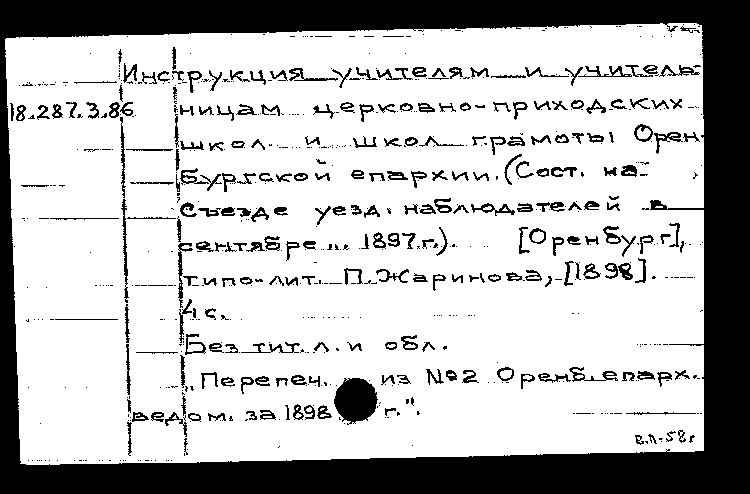 Инструкция учителям и учитель-
18.287.3.86 ницам церковно-приходских
школ и школ грамоты Орен-
бургской епархии. (Сост. на
съезде уезд. наблюдателей в
сентябре ... 1897 г.). [Оренбург],
типо-лит. П. Жаринова, [1898].
4 с.
Без тит. л. и обл.
„Перепеч. из №2 Оренб. епарх.
ведом. за 1898 г.".
в.л-58г